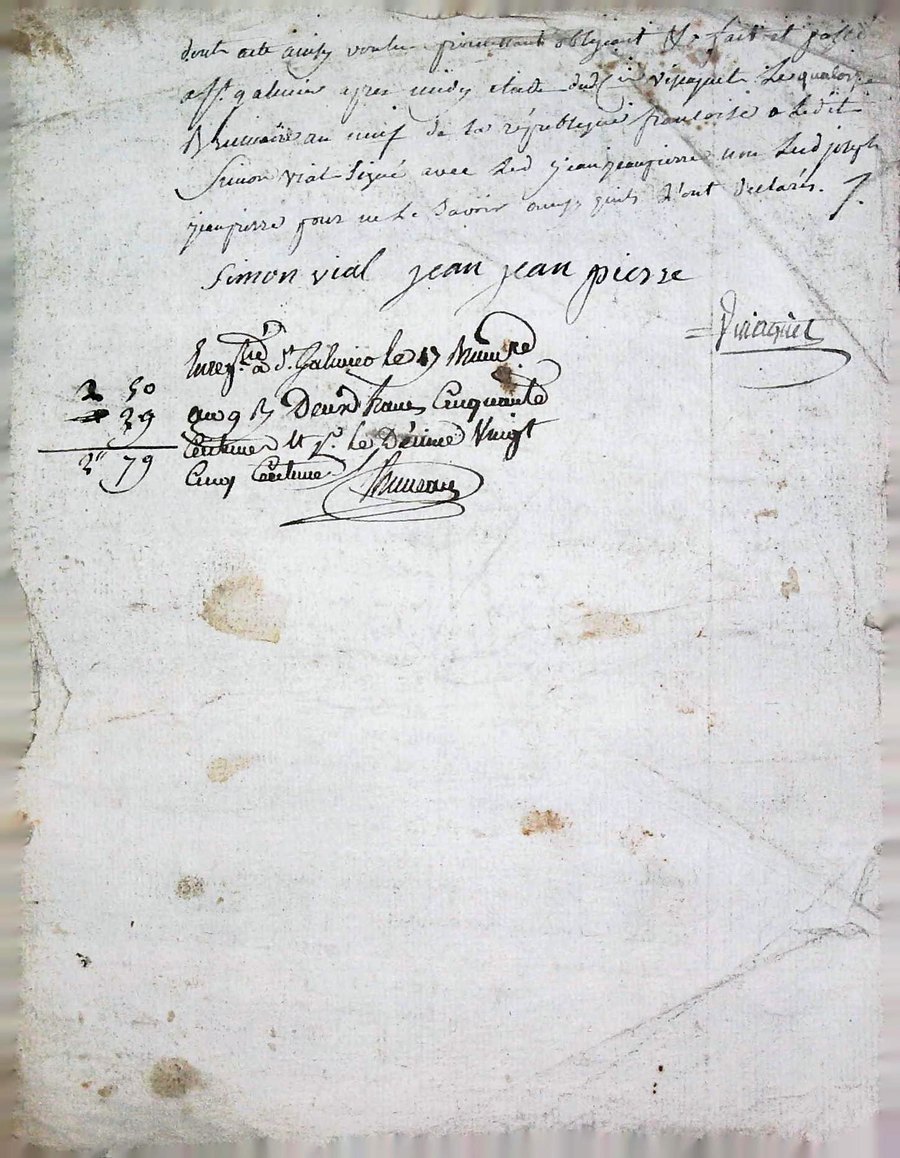 dont acte ainsy voulu promettant obligeant &c fait et passé
a St. galmier apres midy etude dud cin viraguet Le quatorze
Brumaire an neuf de la république françoise a Ledit
Simon vial Signé avec Led jean jeanpierre non Led joseph
jeanpierre pour ne Le Savoir ainsy quils L'ont declarés.
Simon vial jean jean pierre
Viraguet
Enregtré a St. Galmier le 17 Brumre
2 50
an 9 Deux francs Cinquante
29
Centimes et pr. le Décime Vingt
2 79
Cinq Centimes